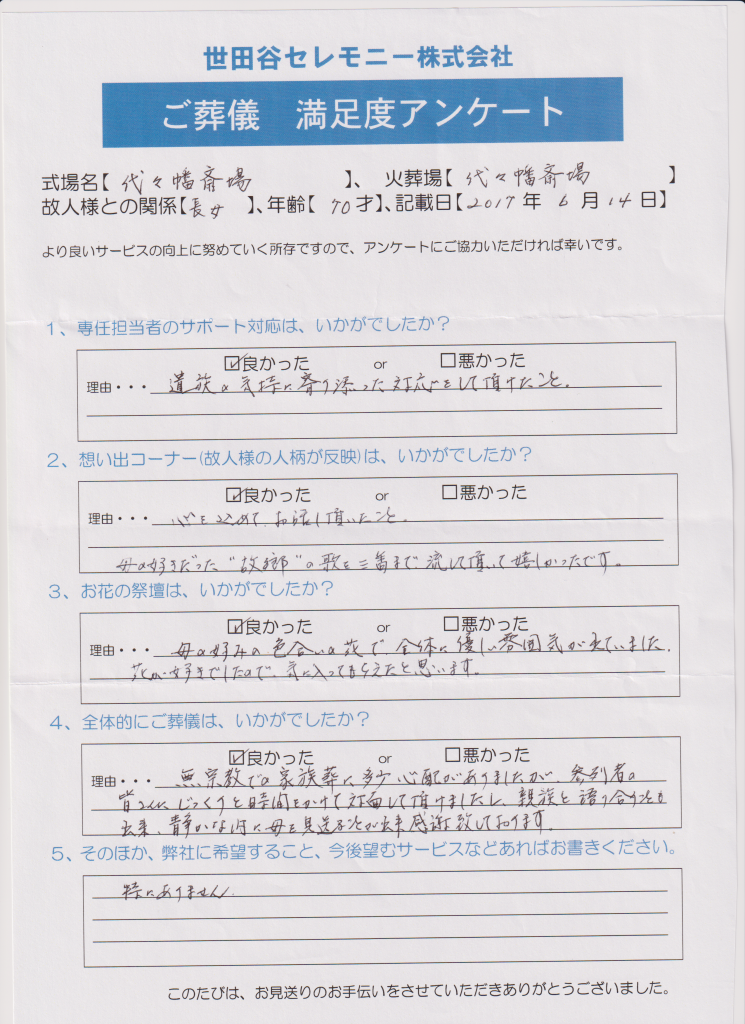 世田谷セレモニー株式会社
ご葬儀 満足度アンケート
式場名【 代々幡斎場 】、 火葬場【 代々幡斎場 】
故人様との関係【長女 】、年齢【 70才】、記載日【2017年 6月14日】
より良いサービスの向上に努めていく所存ですので、アンケートにご協力いただければ幸いです。
1、専任担当者のサポート対応は、いかがでしたか？
☑良かった or □悪かった
理由・・・ 遺族の気持に寄り添った対応をして頂けたこと。
2、想い出コーナー(故人様の人柄が反映)は、いかがでしたか？
☑良かった or □悪かった
理由・・・ 心を込めて、お話し頂いたこと。
母の好きだった“故郷”の歌を三番まで流して頂いて嬉しかったです。
3、お花の祭壇は、いかがでしたか？
☑良かった or □悪かった
理由・・・ 母の好みの色合いの花で、全体に優しい雰囲気が出ていました。
花が好きでしたので、気に入ってもらえたと思います。
4、全体的にご葬儀は、いかがでしたか？
☑良かった or □悪かった
理由・・・ 無宗教での家族葬に多少心配がありましたが、参列者の
皆さんにじっくりと時間をかけて対面して頂けましたし、親族と語り合うことも
出来、静かな内に母を見送ることが出来感謝致しております。
5、そのほか、弊社に希望すること、今後望むサービスなどあればお書きください。
特にありません。
このたびは、お見送りのお手伝いをさせていただきありがとうございました。